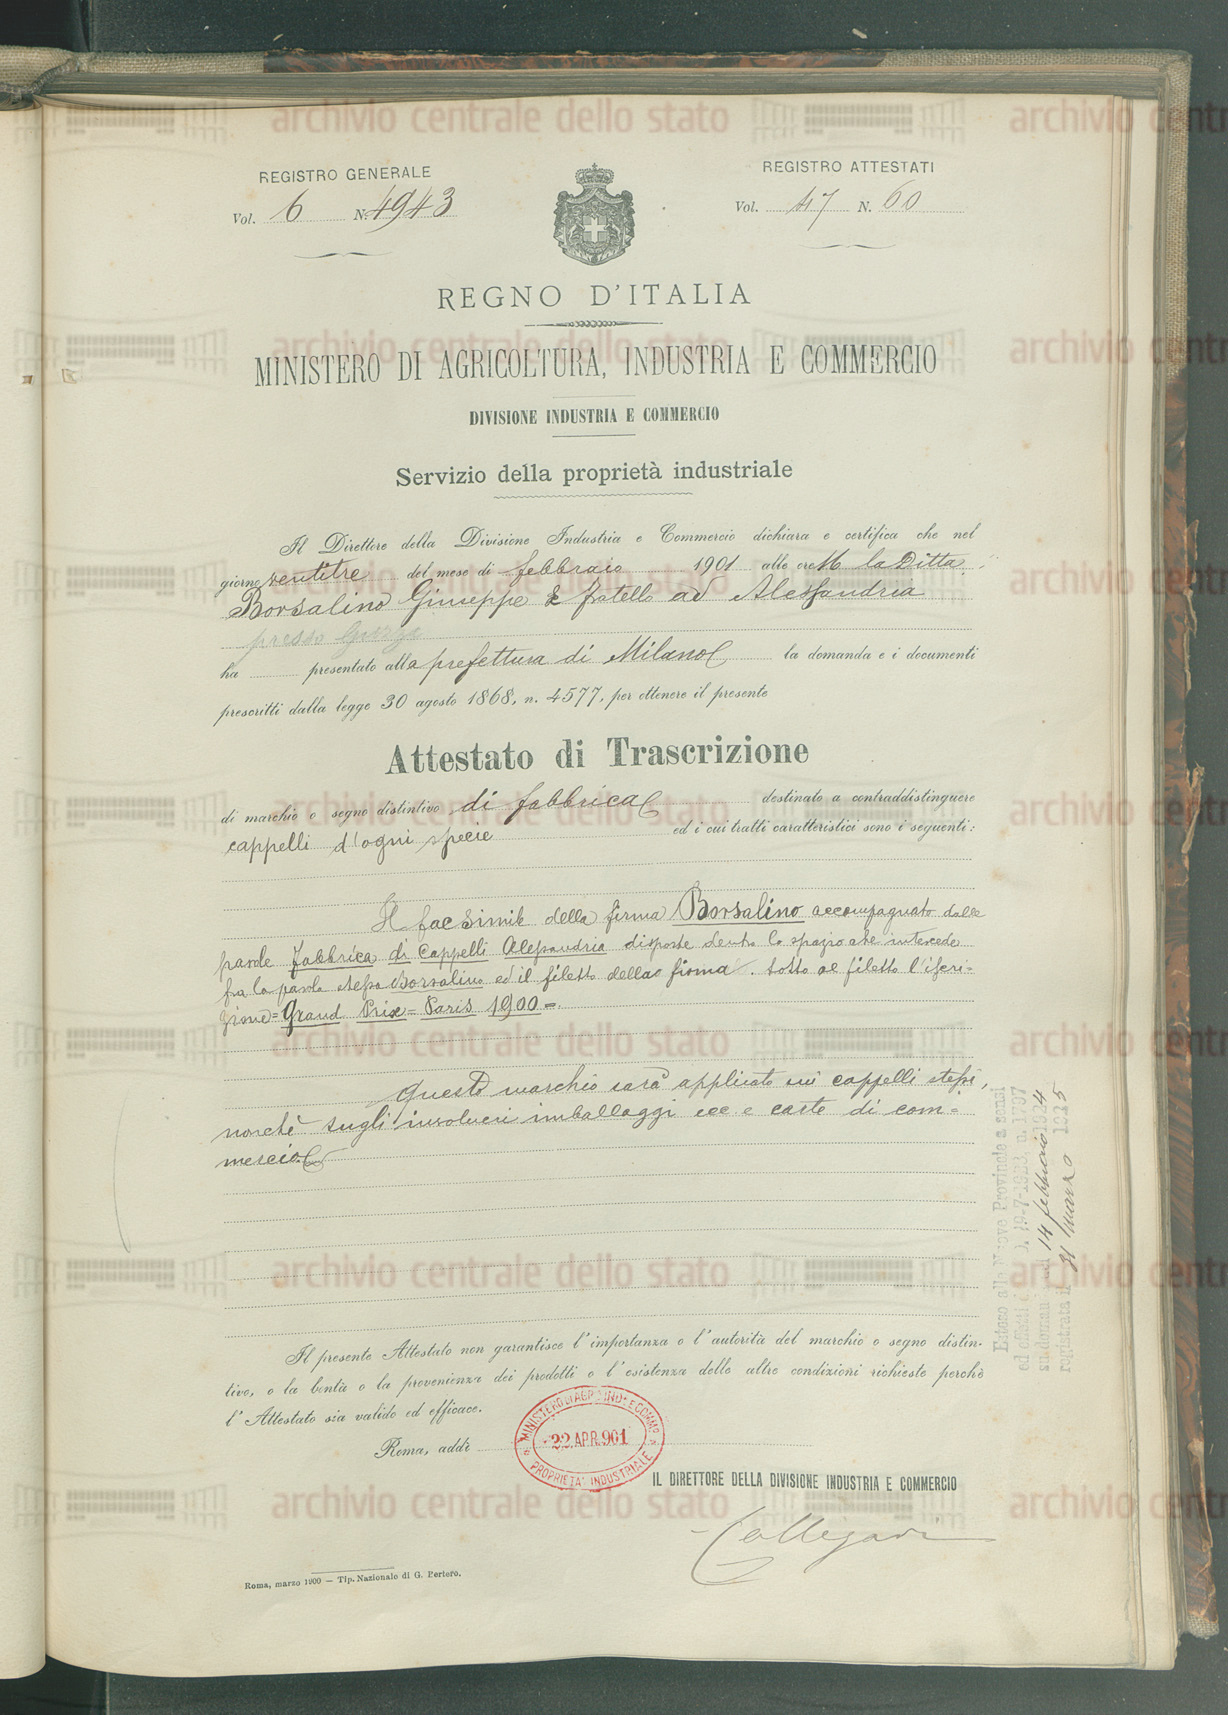 REGISTRO GENERALE
Vol. 6 N. 4943
REGISTRO ATTESTATI
Vol. 47 N. 60
REGNO D'ITALIA
MINISTERO DI AGRICOLTURA, INDUSTRIA E COMMERCIO
DIVISIONE INDUSTRIA E COMMERCIO
Servizio della proprietà industriale
Il Direttore della Divisione Industria e Commercio dichiara e certifica che nel
giorno ventitre del mese di febbraio 1901 alle ore 14 la Ditta
Borsalino Giuseppe & fratello ad Alessandria
presso
ha presentato alla prefettura di Milano la domanda e i documenti
prescritti dalla legge 30 agosto 1868, n. 4577, per ottenere il presente
Attestato di Trascrizione
di marchio o segno distintivo di fabbrica destinato a contraddistinguere
cappelli d'ogni specie ed i cui tratti caratteristici sono i seguenti:
Il facsimile della firma Borsalino accompagnato dalle
parole Fabbrica di Cappelli Alessandria disposte dentro lo spazio che intercede
fra la parola stessa Borsalino ed il filetto della firma. Sotto al filetto l'iscri-
zione = Grand Prix = Paris 1900 =
Questo marchio sarà applicato sui cappelli stessi,
nonchè sugli involucri imballaggi ecc e carte di com-
mercio.
Esteso alle Nuove Provincie a sensi
ed effetti 29-7-1923, n. 1797
su domanda 14 febbraio 1924
registrata il 21 Marzo 1925
Il presente Attestato non garantisce l'importanza o l'autorità del marchio o segno distin-
tivo, o la bontà o la provenienza dei prodotti o l'esistenza delle altre condizioni richieste perchè
l'Attestato sia valido ed efficace.
Roma, addì
MINISTERO DI AGR. IND. E COMM.
22 APR. 901
PROPRIETA' INDUSTRIALE
IL DIRETTORE DELLA DIVISIONE INDUSTRIA E COMMERCIO
Callegari
Roma, marzo 1900 — Tip. Nazionale di G. Bertero.
archivio centrale dello stato